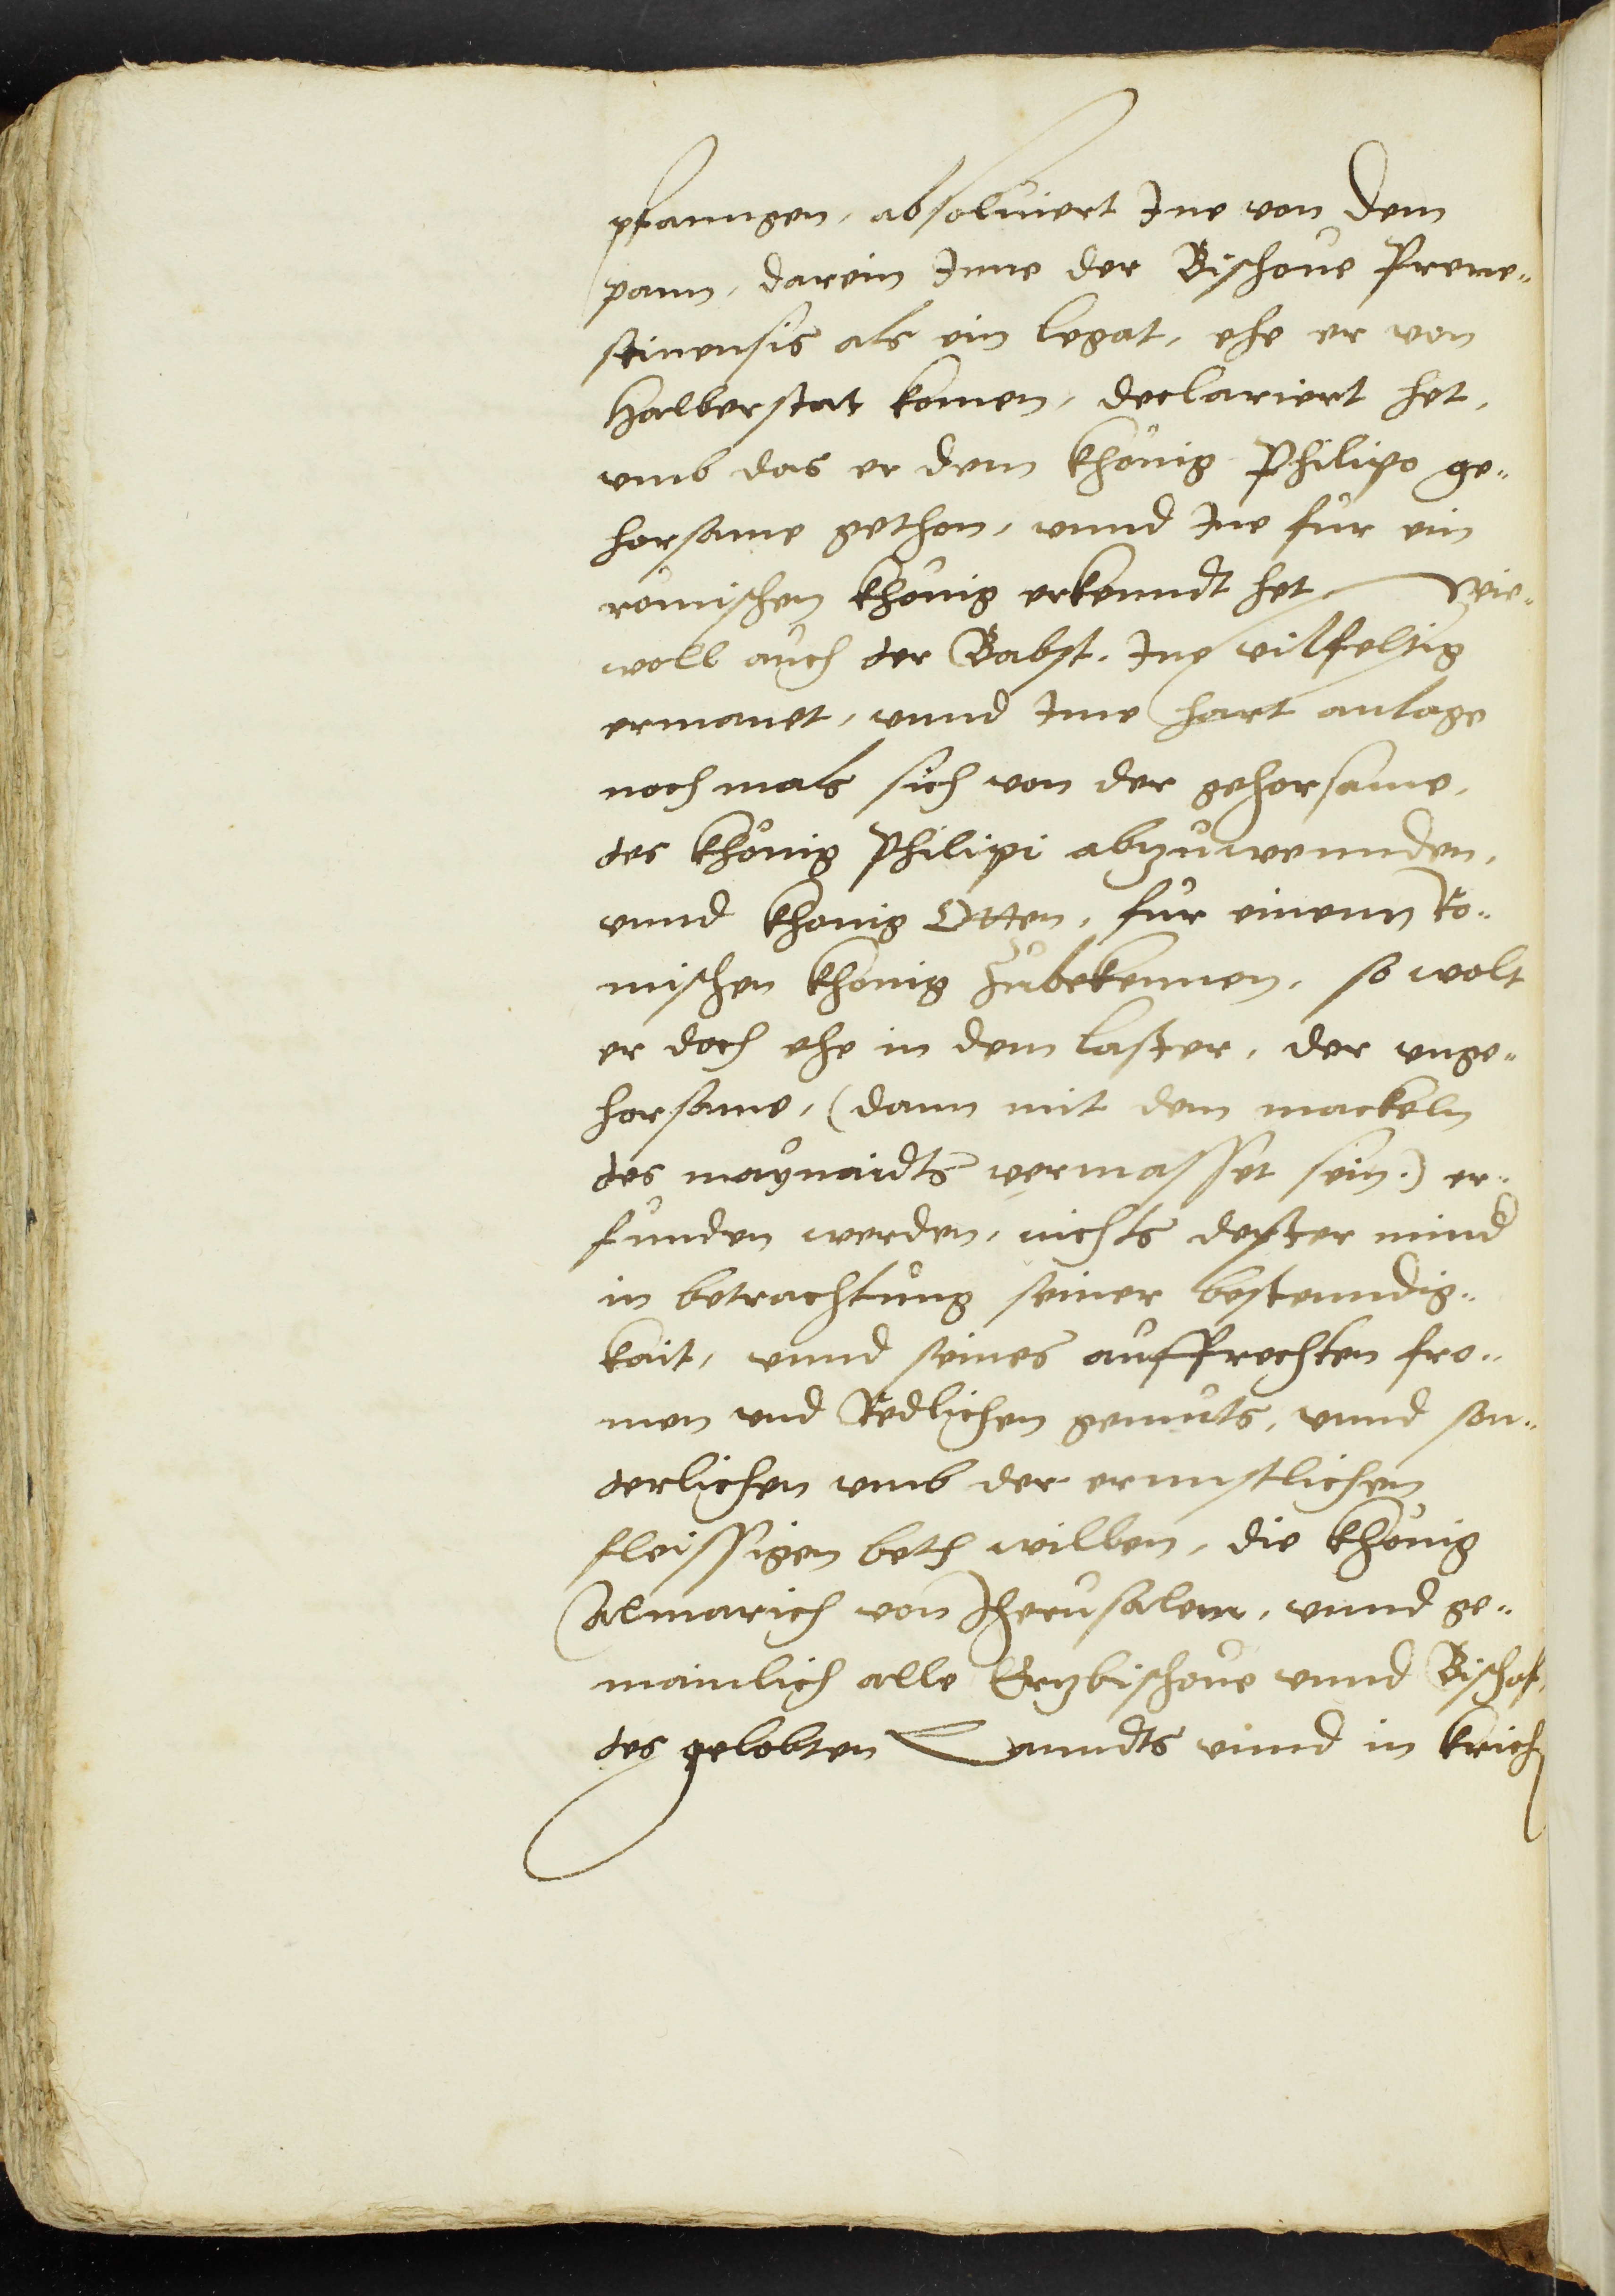 pfanngen, absoluiert Ine von dem
pann, darein Inne der Bischoue Prene-
stinensis als ein legat, ehe er von
Halberstat komen, declariert het,
vmb das er dem khönig Philipo ge-
horsame gethon, vnnd Ine für ein
römischen khönig erkenndt het Wie-
woll auch der Babst. Ine vilfeltig
ermanet, vnnd Ime hart anlage
nochmals sich von der gehorsame,
des khönig Philipi abzuwennden,
vnnd khonig Otten, für einenn Ro-
mischen khönig zubekennen, so wolt
er doch ehe in dem laster, der vnge-
horsame, (dann mit dem mackeln
des maynaidts vermasset sein.) er-
funden werden, nichts dester mind
in betrachtung seiner bestenndig-
kait, vnnd seines auffrechten fro-
men vnd Redlichen gemuts, vnnd son-
derlichen vmb der ernnstlichen
fleissigen beth willen, die khönig
Almarich von Jherusalem, vnnd ge-
mainlich alle Erzbischoue vnnd Bischof,
des gelobten Lanndts vnnd in krich